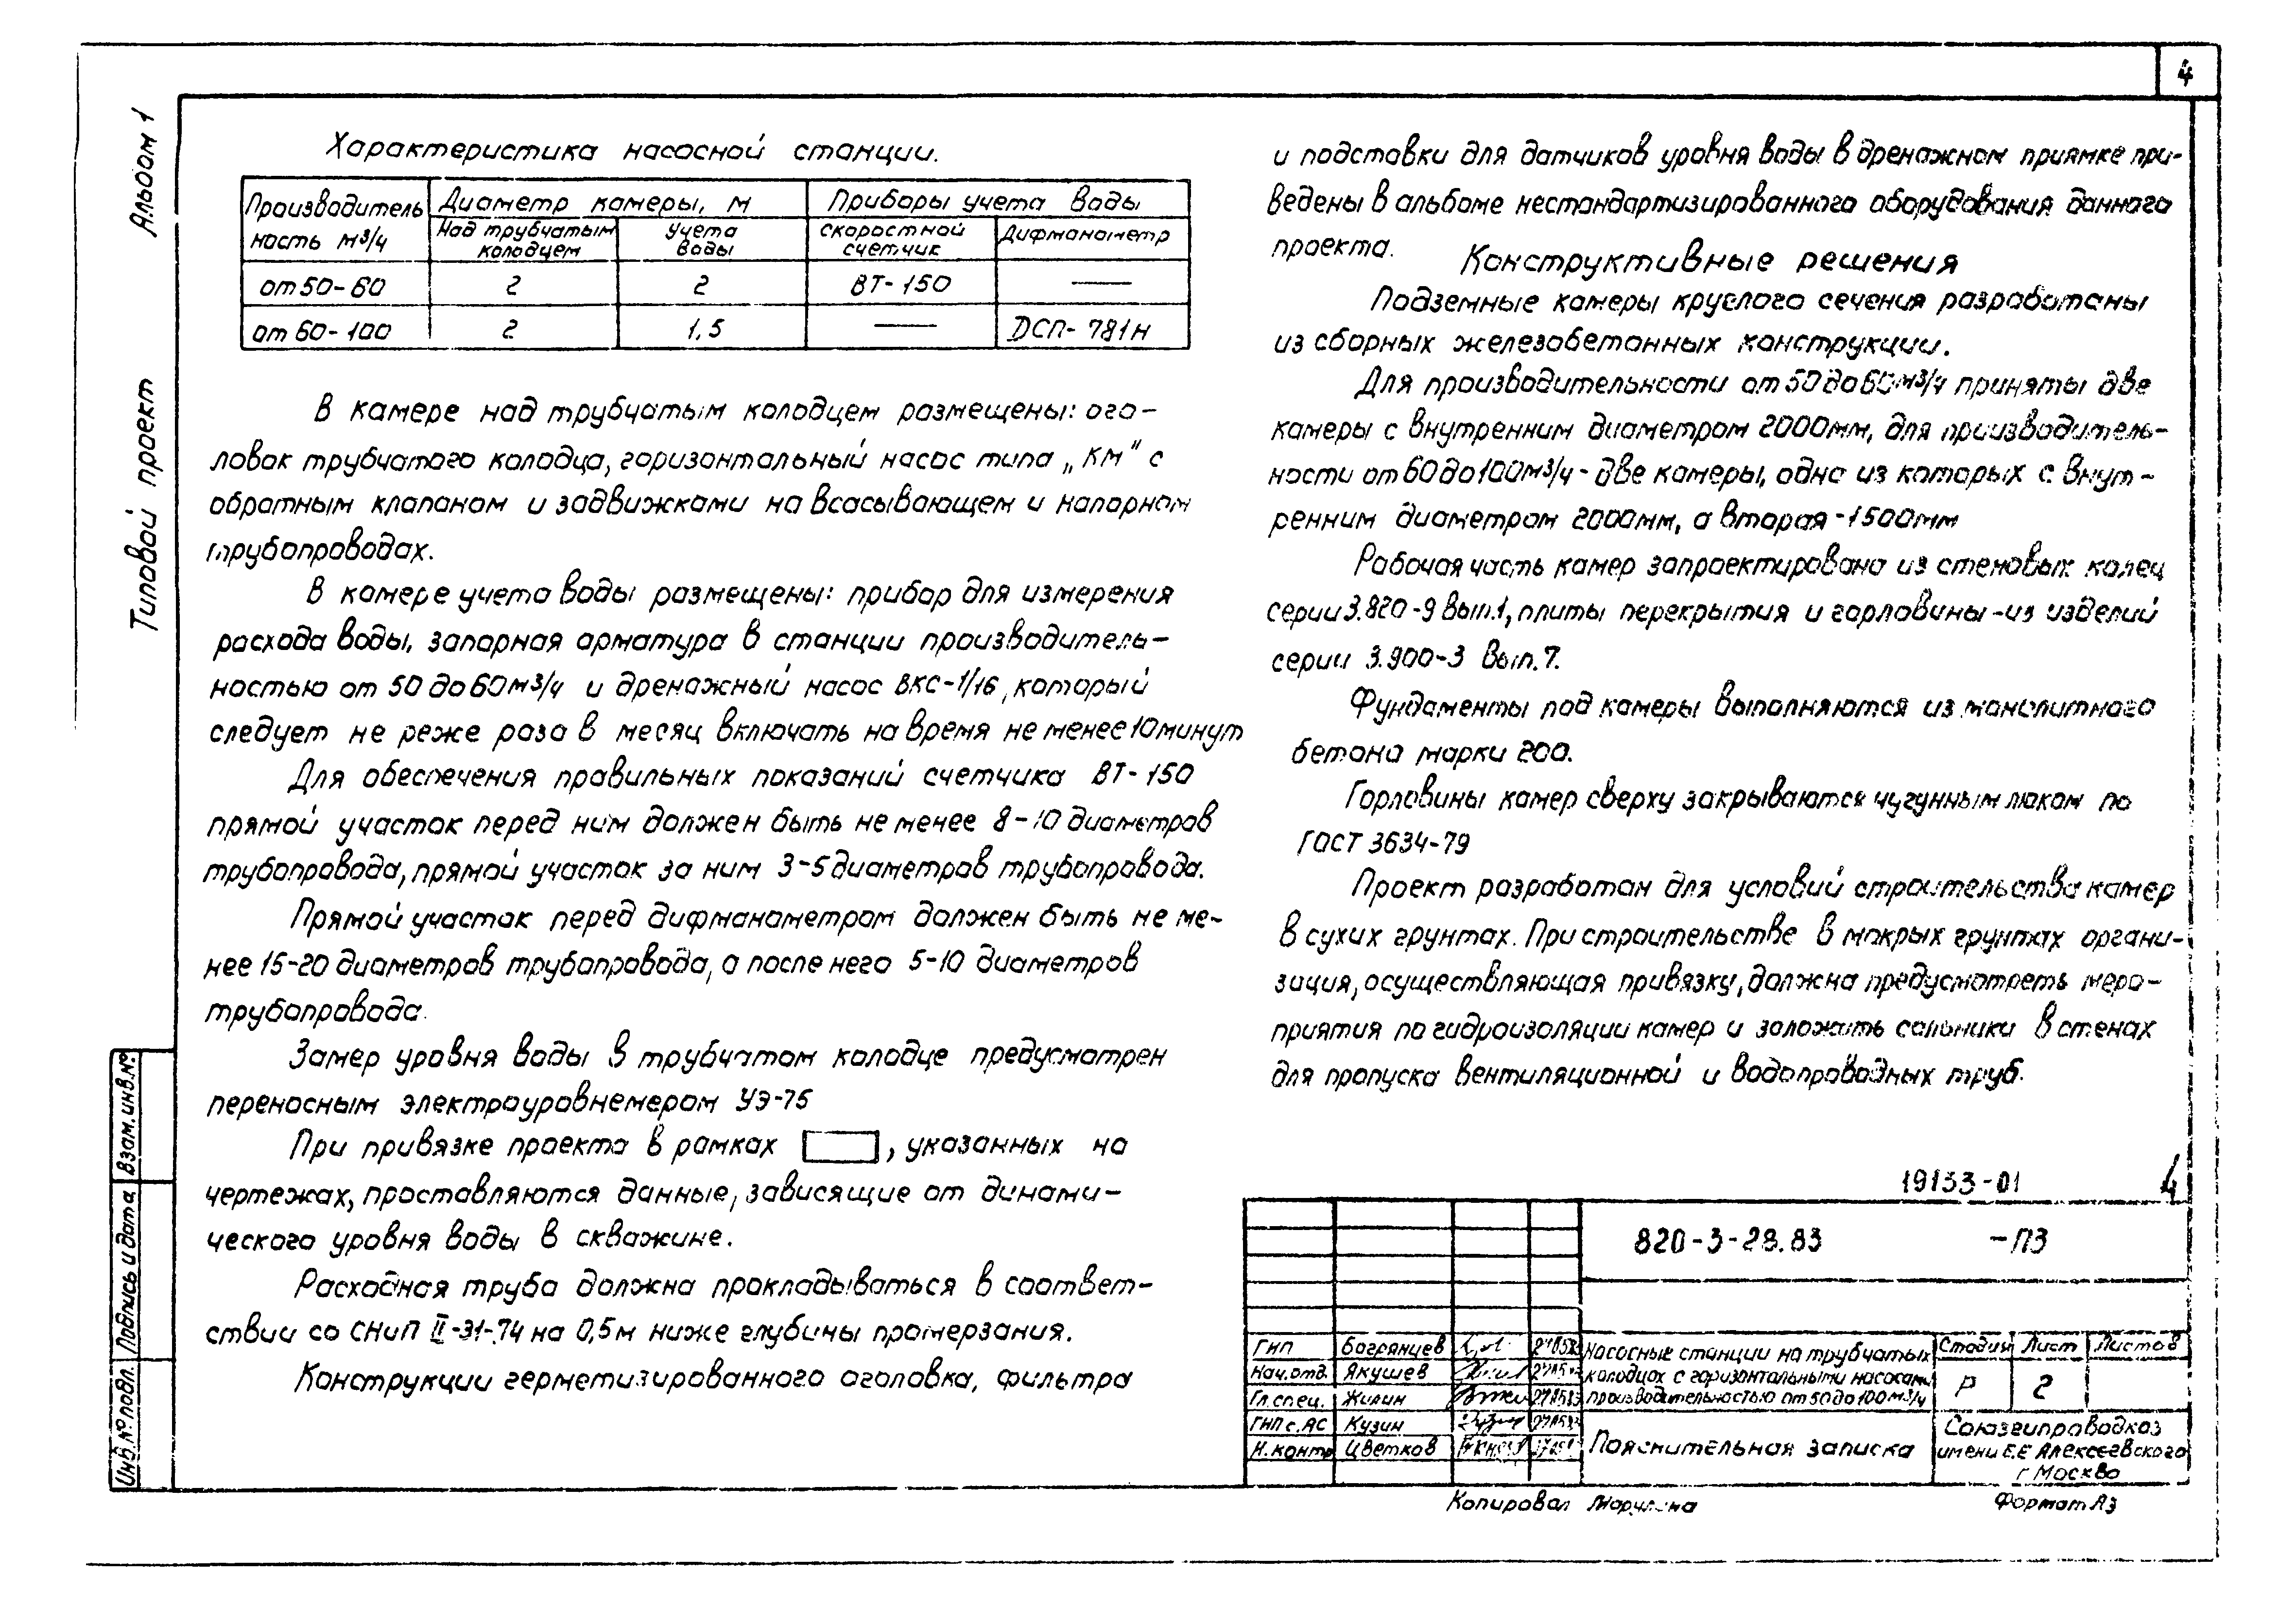 4
Альбом 1
Типовой проект
Характеристика насосной станции.
Производитель Диаметр камеры, м Приборы учета воды
ность м³/ч Над трубчатым колодцем Учета воды скоростной счетчик Дифманометр
от 50-60 2 2 ВТ-150 —
от 60-100 2 1,5 — ДСП-781Н
В камере над трубчатым колодцем размещены: ого-
ловок трубчатого колодца, горизонтальный насос типа „КМ" с
обратным клапаном и задвижками на всасывающем и напорном
трубопроводах.
В камере учета воды размещены: прибор для измерения
расхода воды, запорная арматура в станции производитель-
ностью от 50 до 60 м³/ч и дренажный насос ВКС-1/16, который
следует не реже раза в месяц включать на время не менее 10 минут
Для обеспечения правильных показаний счетчика ВТ-150
прямой участок перед ним должен быть не менее 8-10 диаметров
трубопровода, прямой участок за ним 3-5 диаметров трубопровода.
Прямой участок перед дифманометром должен быть не ме-
нее 15-20 диаметров трубопровода, а после него 5-10 диаметров
трубопровода.
Замер уровня воды в трубчатом колодце предусмотрен
переносным электроуровнемером УЭ-75
При привязке проекта в рамках , указанных на
чертежах, проставляются данные, зависящие от динами-
ческого уровня воды в скважине.
Расходная труба должна прокладываться в соответ-
ствии со СНиП II-31-74 на 0,5м ниже глубины промерзания.
Конструкции герметизированного оголовка, фильтра
и подставки для датчиков уровня воды в дренажном приямке при-
ведены в альбоме нестандартизированного оборудования данного
проекта.
Конструктивные решения
Подземные камеры круглого сечения разработаны
из сборных железобетонных конструкции.
Для производительности от 50 до 60 м³/ч приняты две
камеры с внутренним диаметром 2000мм, для производитель-
ности от 60 до 100м³/ч - две камеры, одна из которых с внут-
ренним диаметром 2000мм, а вторая - 1500мм
Рабочая часть камер запроектирована из стеновых колец
серии 3.820-9 вып.1, плиты перекрытия и горловины - из изделий
серии 3.900-3 вып.7.
Фундаменты под камеры выполняются из монолитного
бетона марки 200.
Горловины камер сверху закрываются чугунным люком по
ГОСТ 3634-79
Проект разработан для условий строительства камер
в сухих грунтах. При строительстве в мокрых грунтах органи-
зация, осуществляющая привязку, должна предусмотреть меро-
приятия по гидроизоляции камер и заложить сальники в стенах
для пропуска вентиляционной и водопроводных труб.
19133-01 4
820-3-28.83 -ПЗ
ГИП Богрянцев
Нач.отд. Якушев
Гл.спец. Жилин
ГИП с.АС Кузин
Н.контр Цветков
Насосные станции на трубчатых
колодцах с горизонтальными насосами
производительностью от 50 до 100 м³/ч
Стадия Лист Листов
Р 2
Пояснительная записка
Союзгипроводхоз
имени Е.Е Алексеевского
г Москва
Копировал
Формат А3
Взам.инв.№
Подпись и дата
Инв.№ подл.